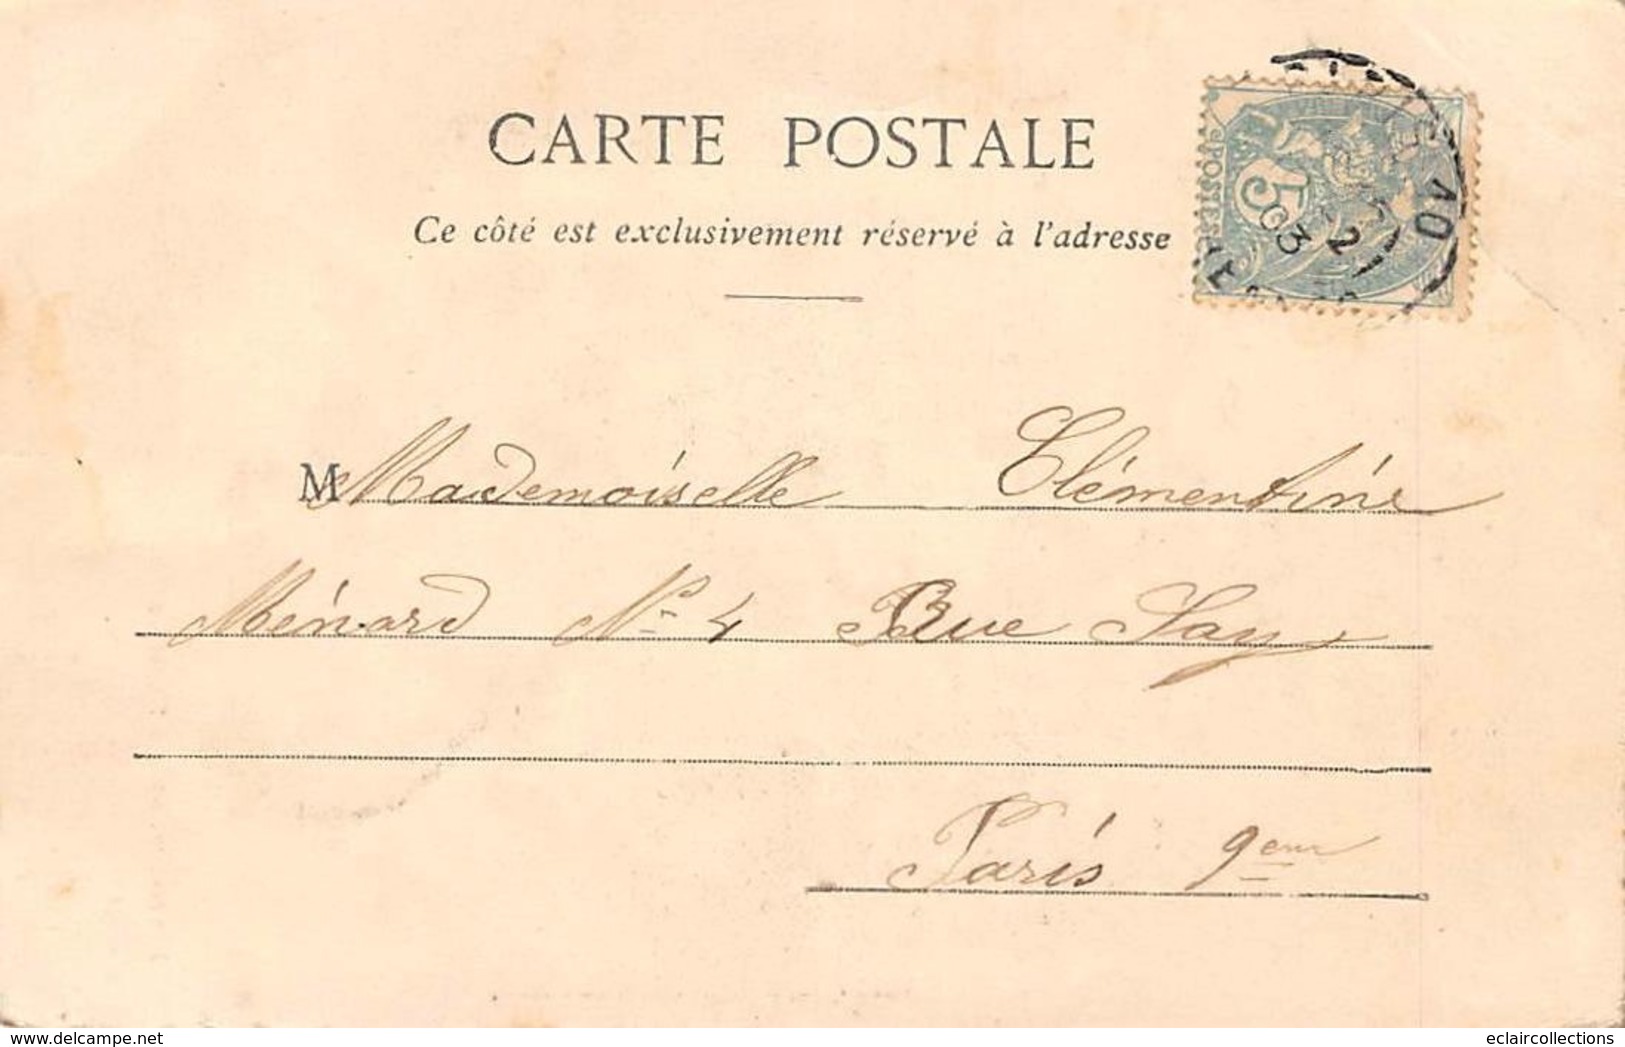 CARTE POSTALE
Ce côté est exclusivement réservé à l'adresse
POSTES
5
10
2
03
M Mademoiselle Clémentine
Ménard N° 4 Rue Say
Paris 9em
www.delcampe.net
eclaircollections